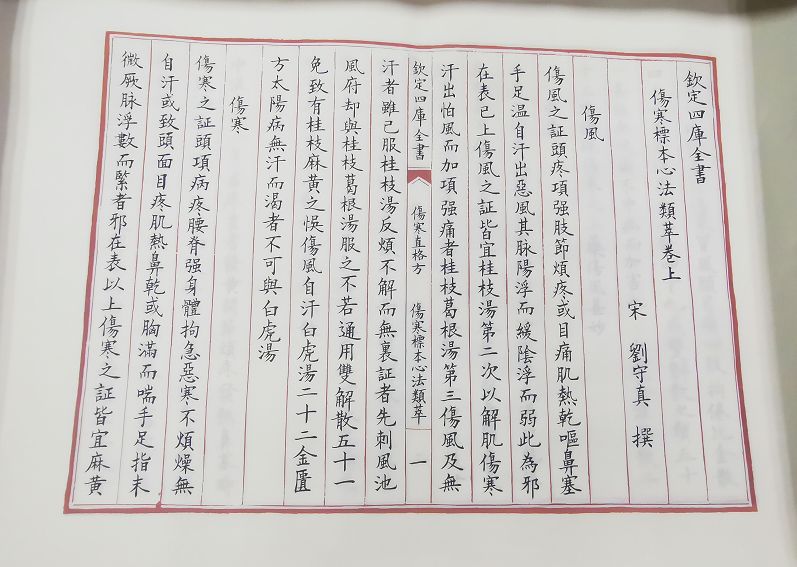 欽定四庫全書
傷寒標本心法類萃卷上
宋 劉守真 撰
傷風
傷風之証頭疼項强肢節煩疼或目痛肌熱乾嘔鼻塞
手足温自汗出惡風其脉陽浮而緩陰浮而弱此為邪
在表已上傷風之証皆宜桂枝湯第二次以解肌傷寒
汗出怕風而加項强痛者桂枝葛根湯第三傷風及無
欽定四庫全書 傷寒直格方 傷寒標本心法類萃 一
汗者雖已服桂枝湯反煩不解而無裏証者先刺風池
風府却與桂枝葛根湯服之不若通用雙解散五十一
免致有桂枝麻黄之悞傷風自汗白虎湯二十二金匱
方太陽病無汗而渴者不可與白虎湯
傷寒
傷寒之証頭項病疼腰脊强身體拘急惡寒不煩燥無
自汗或致頭面目疼肌熱鼻乾或胸滿而喘手足指末
微厥脉浮數而緊者邪在表以上傷寒之証皆宜麻黄